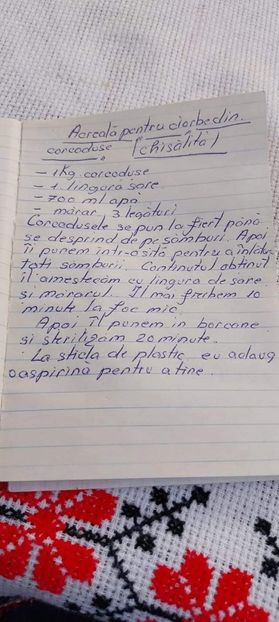 Acreală pentru ciorbe din
corcodușe (chisăliță)
- 1 Kg. corcodușe
- 1 lingura sare
- 700 ml apa
- mărar 3 legături
Corcodusele se pun la fiert până
se desprind de pe sâmburi. Apoi
îl punem într-o sită pentru a înlătu
tați sâmburii. Continutul obținut
îl amestecăm cu lingura de sare
și mărarul. Îl mai fierbem 10
minute la foc mic.
Apoi îl punem in borcane
și sterilizăm 20 minute.
La sticla de plastic eu adaug
o aspirină pentru a tine.